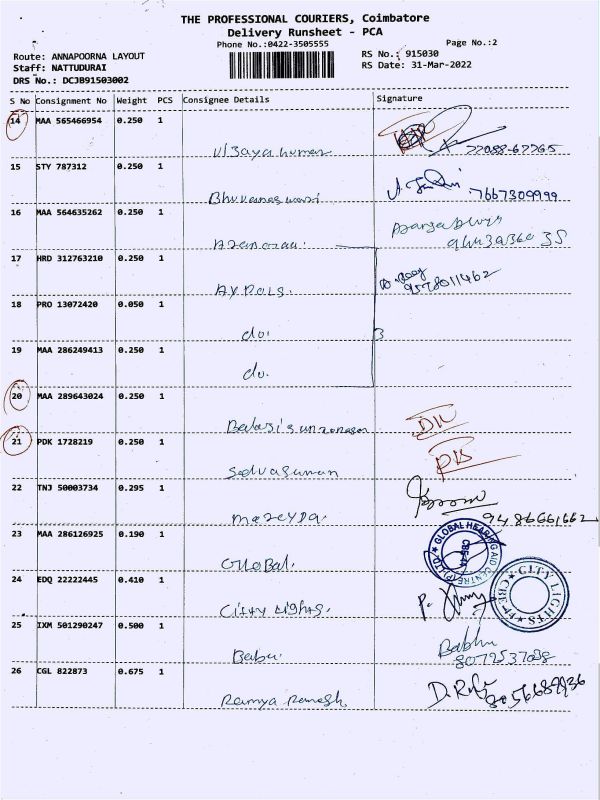 THE PROFESSIONAL COURIERS, Coimbatore
Delivery Runsheet - PCA
Phone No.:0422-3505555
Page No.:2
Route: ANNAPOORNA LAYOUT
RS No.: 915030
Staff: NATTUDURAI
RS Date: 31-Mar-2022
DRS No.: DCJB91503002
S No Consignment No Weight PCS Consignee Details Signature
14 MAA 565466954 0.250 1
Vijayakumar
15 STY 787312 0.250 1
Bhuvaneswari 7667309999
16 MAA 564635262 0.250 1
17 HRD 312763210 0.250 1
9578011462
18 PRO 13072420 0.050 1
do. 3
19 MAA 286249413 0.250 1
do.
20 MAA 289643024 0.250 1
DL
21 PDK 1728219 0.250 1
Selvakumar
22 TNJ 50003734 0.295 1
9486661662
23 MAA 286126925 0.190 1
GLOBAL HEARING AID CENTRE (P) LTD
Global.
24 EDQ 22222445 0.410 1
CITY LIGHTS
CBE-44
City Lights.
25 IXM 501290247 0.500 1
Babu. Babhu
26 CGL 822873 0.675 1
Ramya Ramesh